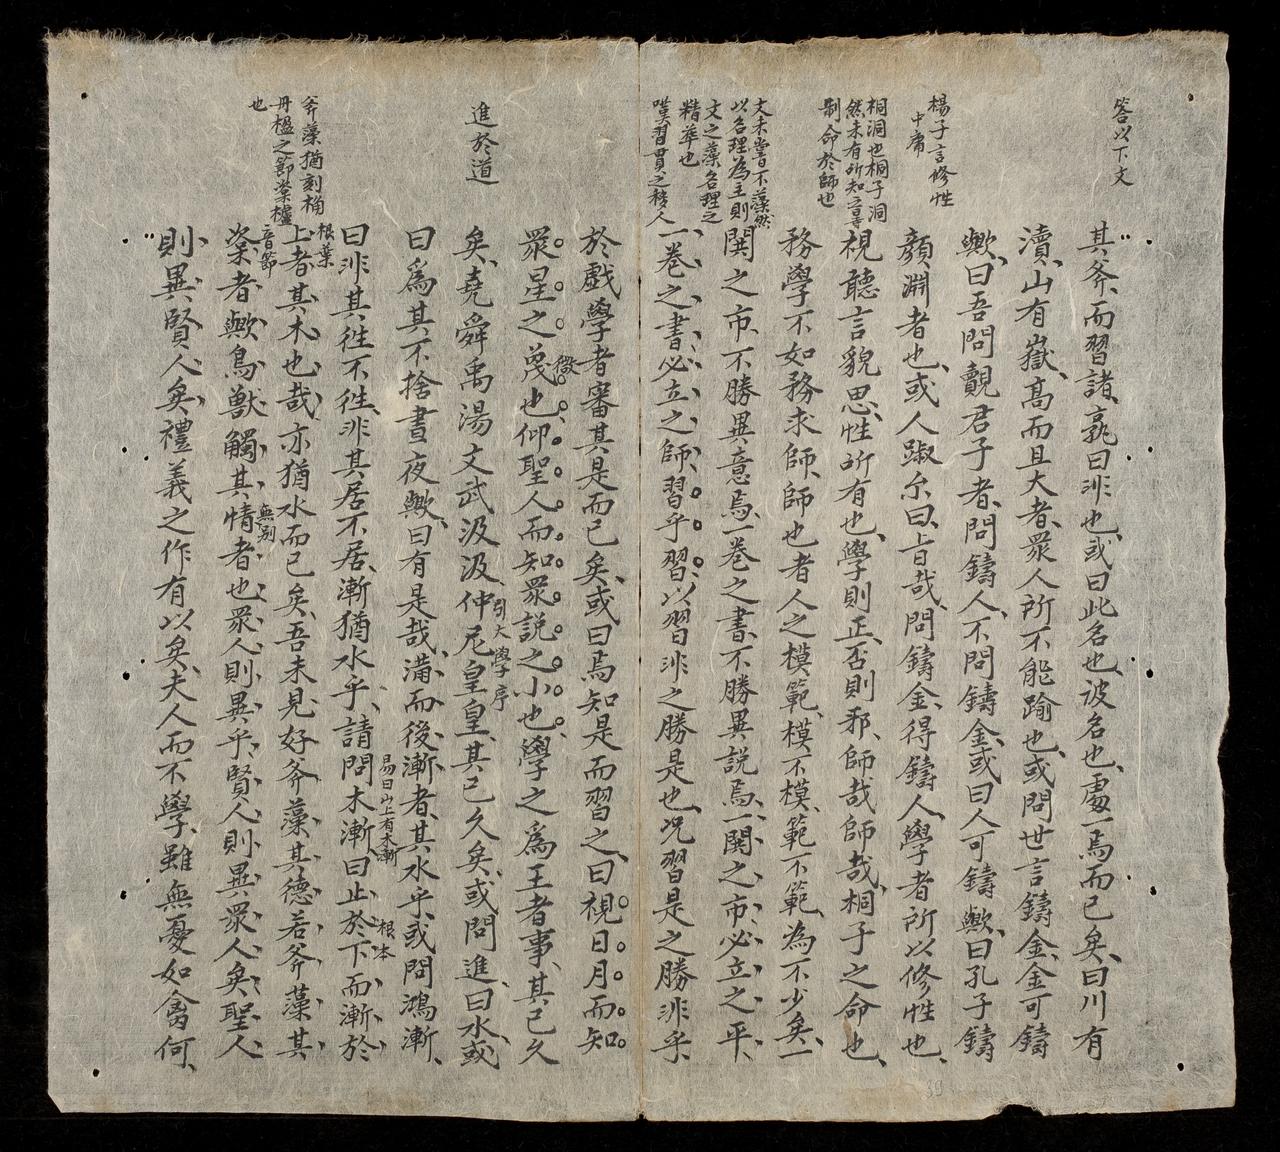 答以下文
其斧、而習諸、孰曰非也、或曰此名也彼名也、處一焉而已矣、曰川有
瀆、山有嶽、高而且大者、眾人所不能踰也、或問世言鑄金、金可鑄
歟、曰吾問覿君子者、問鑄人、不問鑄金、或曰人可鑄歟、曰孔子鑄
楊子言修性
中庸
顏淵者也、或人踧尒曰、旨哉、問鑄金、得鑄人、學者所以修性也、
桐洞也桐子洞
然未有所知之
制命於師也
視聽言貌思、性所有也、學則正、否則邪、師哉師哉、桐子之命也、
務學不如務求師、師也者人之模範、模不模、範不範、為不少矣、一
文未嘗不藻然
以名理為主則
文之藻名理之
精華也
鬨之市、不勝異意焉、一卷之書、不勝異說焉、一鬨之市、必立之平、
嘆習貫之移人
一卷之書、必立之師、習乎習、以習非之勝是也、況習是之勝非乎、
於戲學者審其是而已矣、或曰焉知是而習之、曰視日月而知
眾星之蔑也、仰聖人而知眾說之小也、學之為王者事、其已久
微
進於道
矣、堯舜禹湯文武汲汲、仲尼皇皇、其已久矣、或問進、曰水、或
引大學序
曰為其不捨晝夜歟、曰有是哉、滿而後漸者、其水乎、或問鴻漸、
易曰山上有木漸
根本
曰非其徃不徃、非其居不居、漸猶水乎、請問木漸、曰止於下而漸於
根葉
斧藻猶刻桷
丹楹之節棠櫨
也
上者、其木也哉、亦猶水而已矣、吾未見好斧藻其德、若斧藻其
音節
楶者歟、鳥獸觸其情者也、眾人則異乎、賢人則異眾人矣、聖人
無別
則異賢人矣、禮義之作、有以矣、夫人而不學、雖無憂如禽何、
39